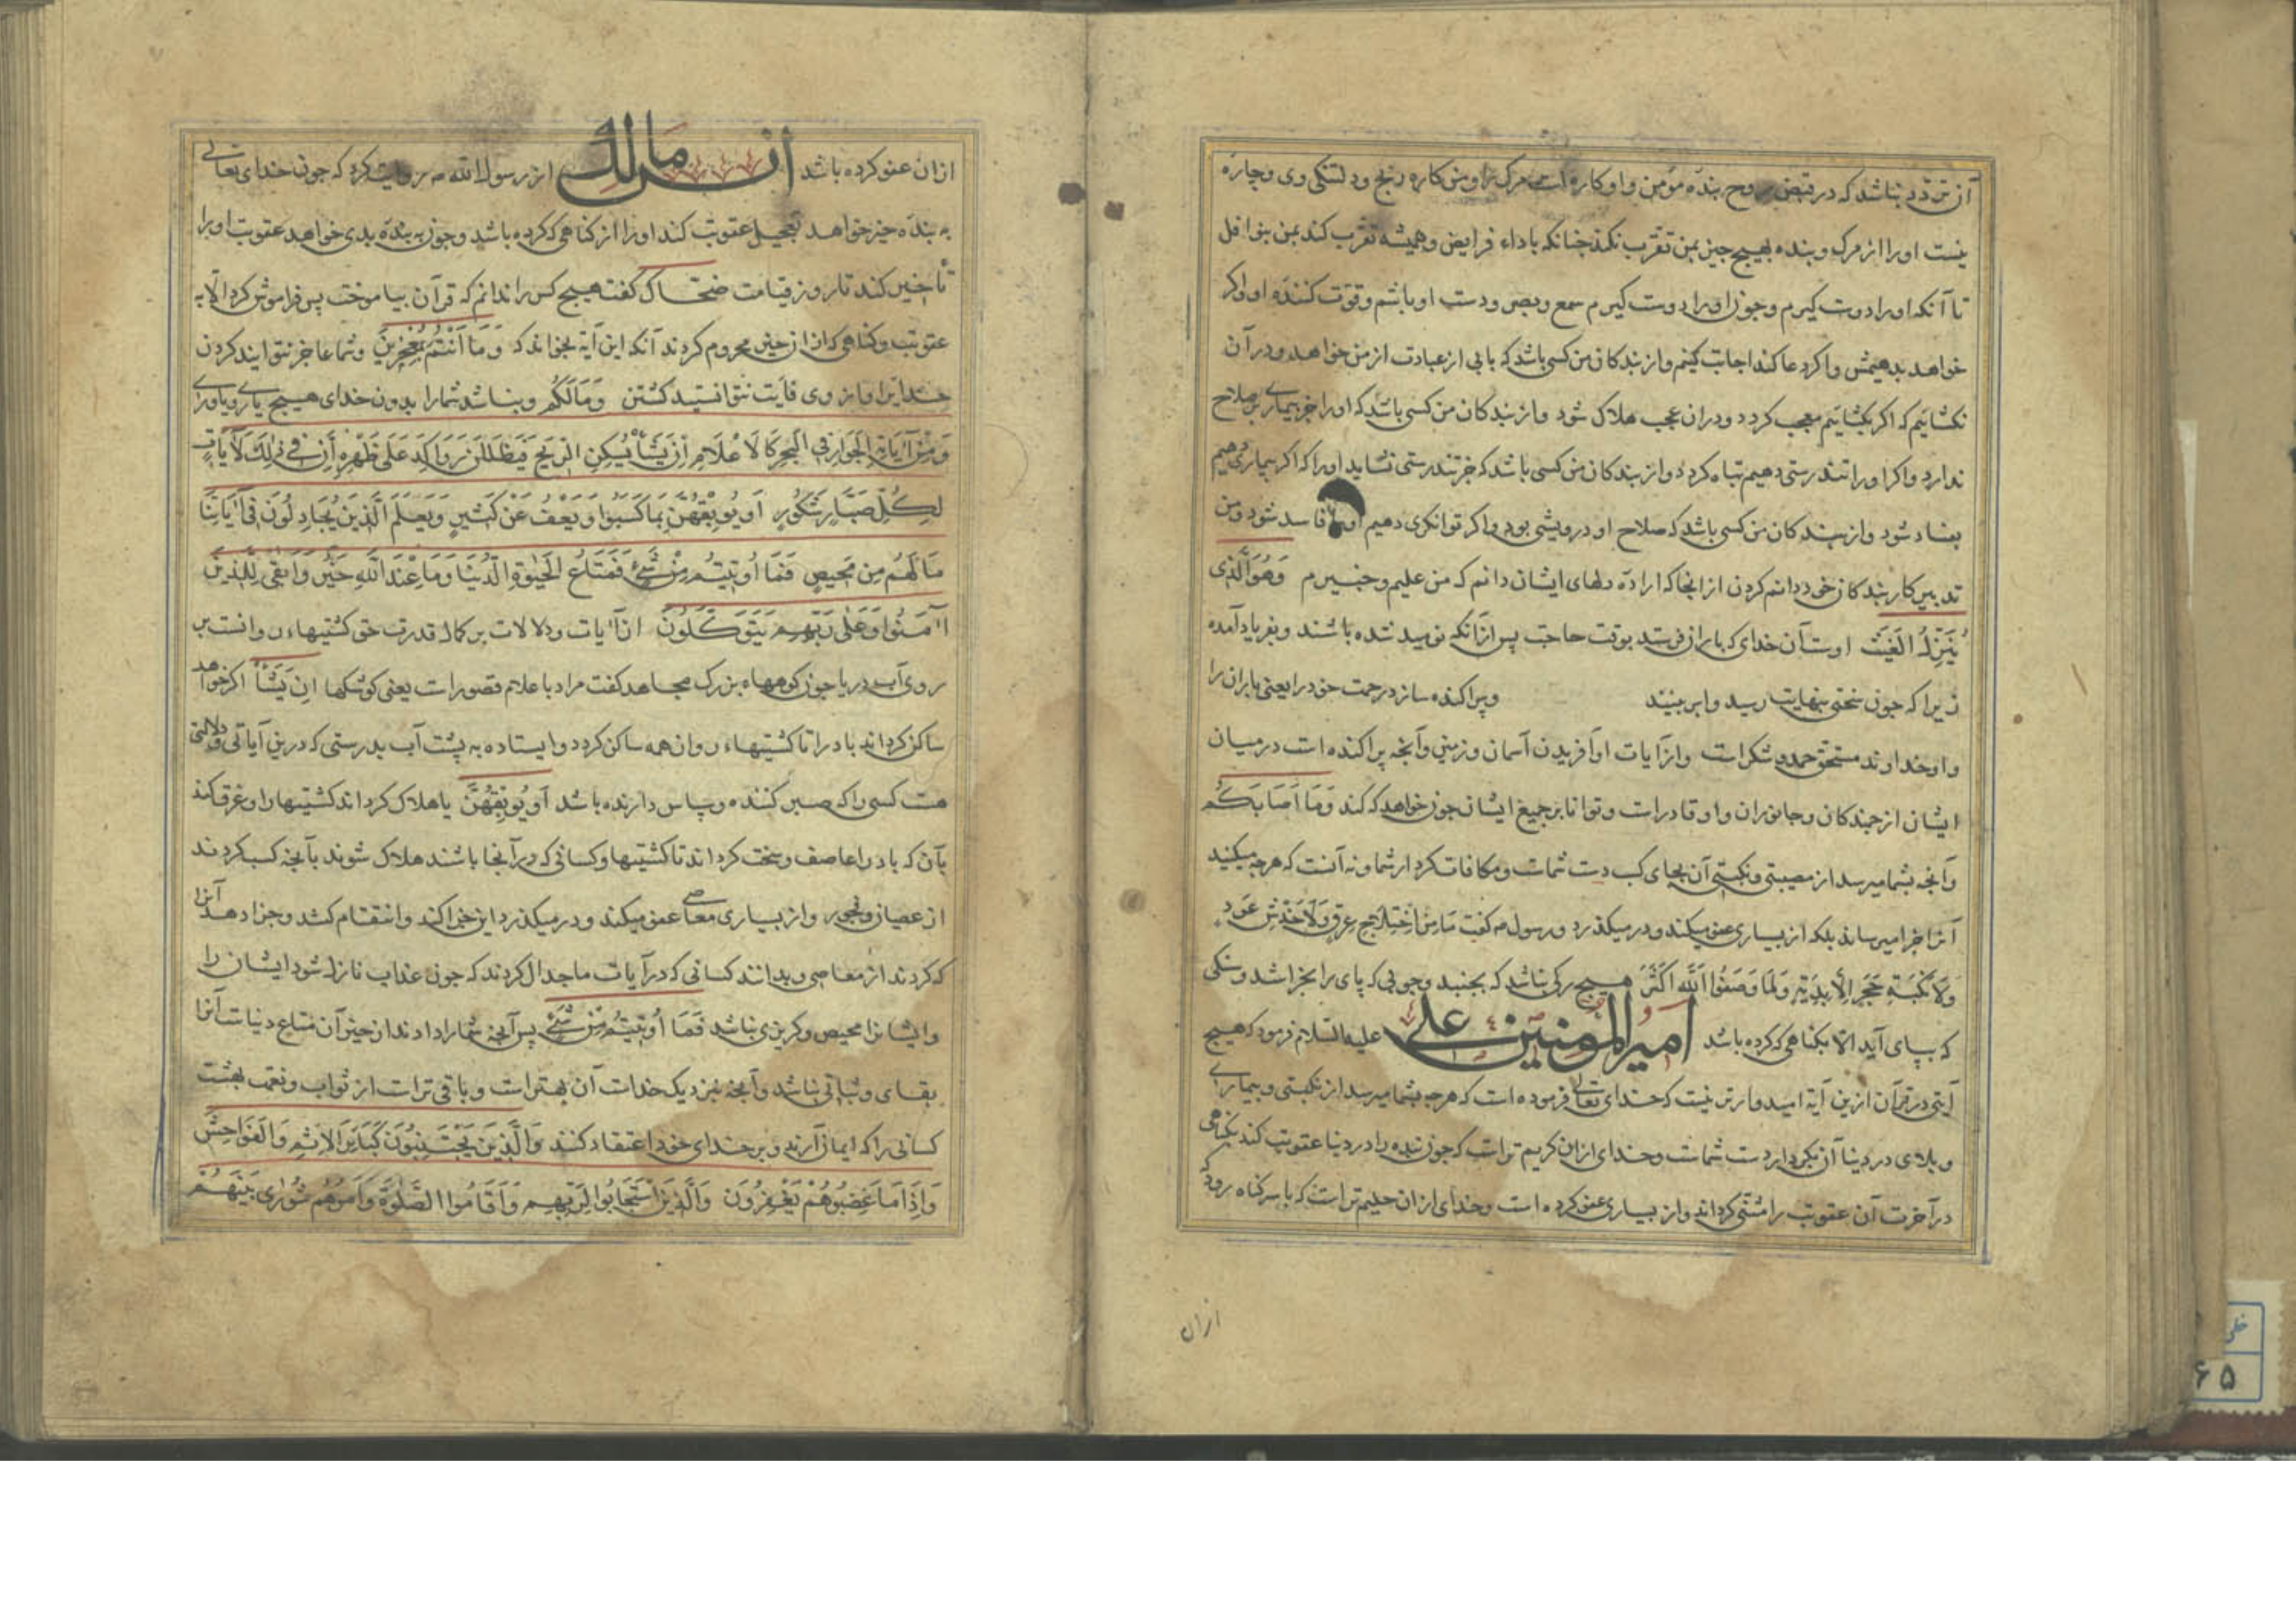 آن تردد نباشد که در قبض روح بنده مؤمن و او کاره است مرک را و من کاره رنج و دلتنکی وی و چاره
نیست او را از مرک و بنده بهیچ چیز بمن تقرب نکند چنانکه باداء فرایض و همیشه تقرب کند بمن بنوافل
تا آنکه او را دوست کیرم و چون او را دوست کیرم سمع و بصر و دست او باشم و قوت کننده او و اکر
خواهد بدهیمش و اکر دعا کند اجابت کنم و از بندکان من کسی باشد که بابی از عبادت از من خواهد و در آن
نکشایم که اکر بکشایم معجب کردد و در ان عجب هلاک شود و از بندکان من کسی باشد که او را جز بیماری بصلاح
ندارد و اکر او را تندرستی دهیم تباه کردد و از بندکان من کسی باشد که جز تندرستی نشاید او را که اکر بیماری دهیم
بفساد شود و از بندکان من کسی باشد که صلاح او درویشی بود و اکر توانکری دهیم او را فاسد شود و من
تدبیر کار بندکان خود دانم کردن از انجا که اراده دلهای ایشان دانم که من علیم و خبیرم وَهُوَ الَّذِی
یُنَزِّلُ الغَیْثَ اوست آن خدای که باران فرستد بوقت حاجت پس از آنکه نومید شده باشند و بفریاد آمده
زیرا که چون سختی بنهایت رسید و ابر ببینند وپراکنده سازد رحمت خود را یعنی باران را
و او خداوند مستحق حمد و شکرست و از آیات او آفریدن آسمان و زمین و آنچه پراکنده است در میان
ایشان از جنبدکان و جانوران و او قادرست و توانا بر جمیع ایشان چون خواهد که کند وَمَا اَصَابَکُم
و آنچه بشما میرسد از مصیبتی و نکبتی آن بجای کسب دست شماست و مکافات کردار شما و نه آنست که هرچه میکنید
آنرا جزا میرساند بلکه از بسیاری عفو میکند و در میکذرد و رسول صه کفت مَا مِن اِختِلاجِ عِرقٍ وَلَا خَدْشِ عَودٍ
وَلَا نَکْبَةِ حَجَرٍ اِلّا بِذَنبٍ وَلَمَا یَعفُوا اللّه اَکثَرُ هیچ رکی نباشد که بجنبد و چوبی که پای را بخراشد و سنکی
که بپای آید الا بکناهی که کرده باشد امیر المومنین علی علیه السلام فرمود که هیچ
آیتی در قرآن ازین آیة امیدوارتر نیست که خدای تعالی فرموده است که هرچه بشما میرسد از نکبتی و بیماری
و بلای در دنیا آن بکردار دست شماست و خدای ازان کریم تر است که چون بنده را در دنیا عقوبت کند بکناهی
در آخرت آن عقوبت را مثنی کرداند و از بسیاری عفو کرده است و خدای ازان حلیم تر است که با سر کناه رود که
ازان
ازان عفو کرده باشد انس مالک از رسول الله صه روایت کرد که چون خدای تعالی
به بنده خیر خواهد تعجیل عقوبت کند او را از کناهی که کرده باشد و چون به بنده بدی خواهد عقوبت او را
تأخیر کند تا روز قیامت ضحاک کفت هیچ کس را ندانم که قرآن بیاموخت پس فراموش کرد الا به
عقوبت و کناهی که ازان از خیر محروم کردند آنکه این آیة بخواند که وَمَا اَنْتُم بِمُعْجِزِینَ و شما عاجز نتوانید کردن
خدایرا و از وی فایت نتوانید کشتن وَمَالَکُم و نباشد شما را بدون خدای هیچ یاری و یاوری
وَمِنْ آیَاتِهِ الجَوَارِ فِی البَحرِ کَالاَعْلَامِ اِن یَشَأ یُسکِنِ الرِّیحَ فَیَظلَلنَ رَوَاکِدَ عَلَی ظَهْرِهِ اِنَّ فِی ذٰلِکَ لَآیَاتٍ
لِکُلِّ صَبَّارٍ شَکُورٍ اَو یُوبِقْهُنَّ بِمَا کَسَبُوا وَیَعْفُ عَنْ کَثِیرٍ وَیَعلَمَ الَّذِینَ یُجَادِلُونَ فِی آیَاتِنَا
مَا لَهُم مِن مَحِیصٍ فَمَا اُوتِیتُم مِنْ شَیْءٍ فَمَتَاعُ الحَیٰوةِ الدُّنْیَا وَمَا عِنْدَ اللّهِ خَیْرٌ وَاَبْقَی لِلَّذِینَ
آمَنُوا وَعَلَی رَبِّهِم یَتَوَکَّلُونَ از آیات و دلالات بر کمال قدرت حق کشتیهاء روانست بر
روی آب دریا چون کوهها بزرک مجاهد کفت مراد باعلام قصورست یعنی کوشکها اِن یَشَأ اکر خواهد
ساکن کرداند باد را تا کشتیهاء روان همه ساکن کردد و ایستاده به پشت آب بدرستی که درین آیاتی و دلالتی
هست کسی را که صبر کننده و سپاس دارنده باشد اَو یُوبِقْهُنَّ یا هلاک کرداند کشتیها را و غرق کند
بآن که باد را عاصف و سخت کرداند تا کشتیها و کسانی که در آنجا باشند هلاک شوند بآنچه کسب کردند
از عصیان و فجور و از بسیاری معاصی عفو میکند و در میکذرد این چرا کند و انتقام کشد و جزا دهد آنرا
که کردند از معاصی و بدانند کسانی که در آیات ما جدال کردند که چون عذاب نازل شود ایشان را
و ایشانرا محیص و کریزی نباشد فَمَا اُوتِیتُم مِنْ شَیْءٍ پس آنچه شما را دادند از چیز آن متاع دنیاست آنرا
بقای و ثباتی نباشد و آنچه بنزدیک خداست آن بهترست و باقی ترست از ثواب و نعمت بهشت
کسانی را که ایمان آرند و بر خدای خود اعتقاد کنند وَالَّذِینَ یَجْتَنِبُونَ کَبَائِرَ الاِثمِ وَالفَوَاحِشَ
وَاِذَا مَا غَضِبُوا هُمْ یَغْفِرُونَ وَالَّذِینَ اسْتَجَابُوا لِرَبِّهِم وَاَقَامُوا الصَّلٰوةَ وَاَمرُهُم شُورَی بَینَهُم
خطی
۶۵